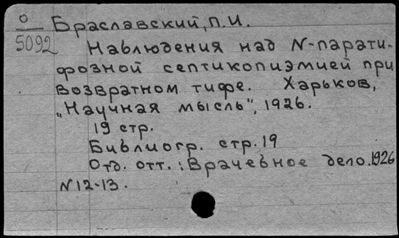 О
5092
Браславский, П.И.
Наблюдения над N-парати-
фозной септикопиэмией при
возвратном тифе. Харьков,
„Научная мысль", 1926.
19 стр.
Библиогр. стр. 19
Отд. отт.: Врачебное дело. 1926
N12-13.